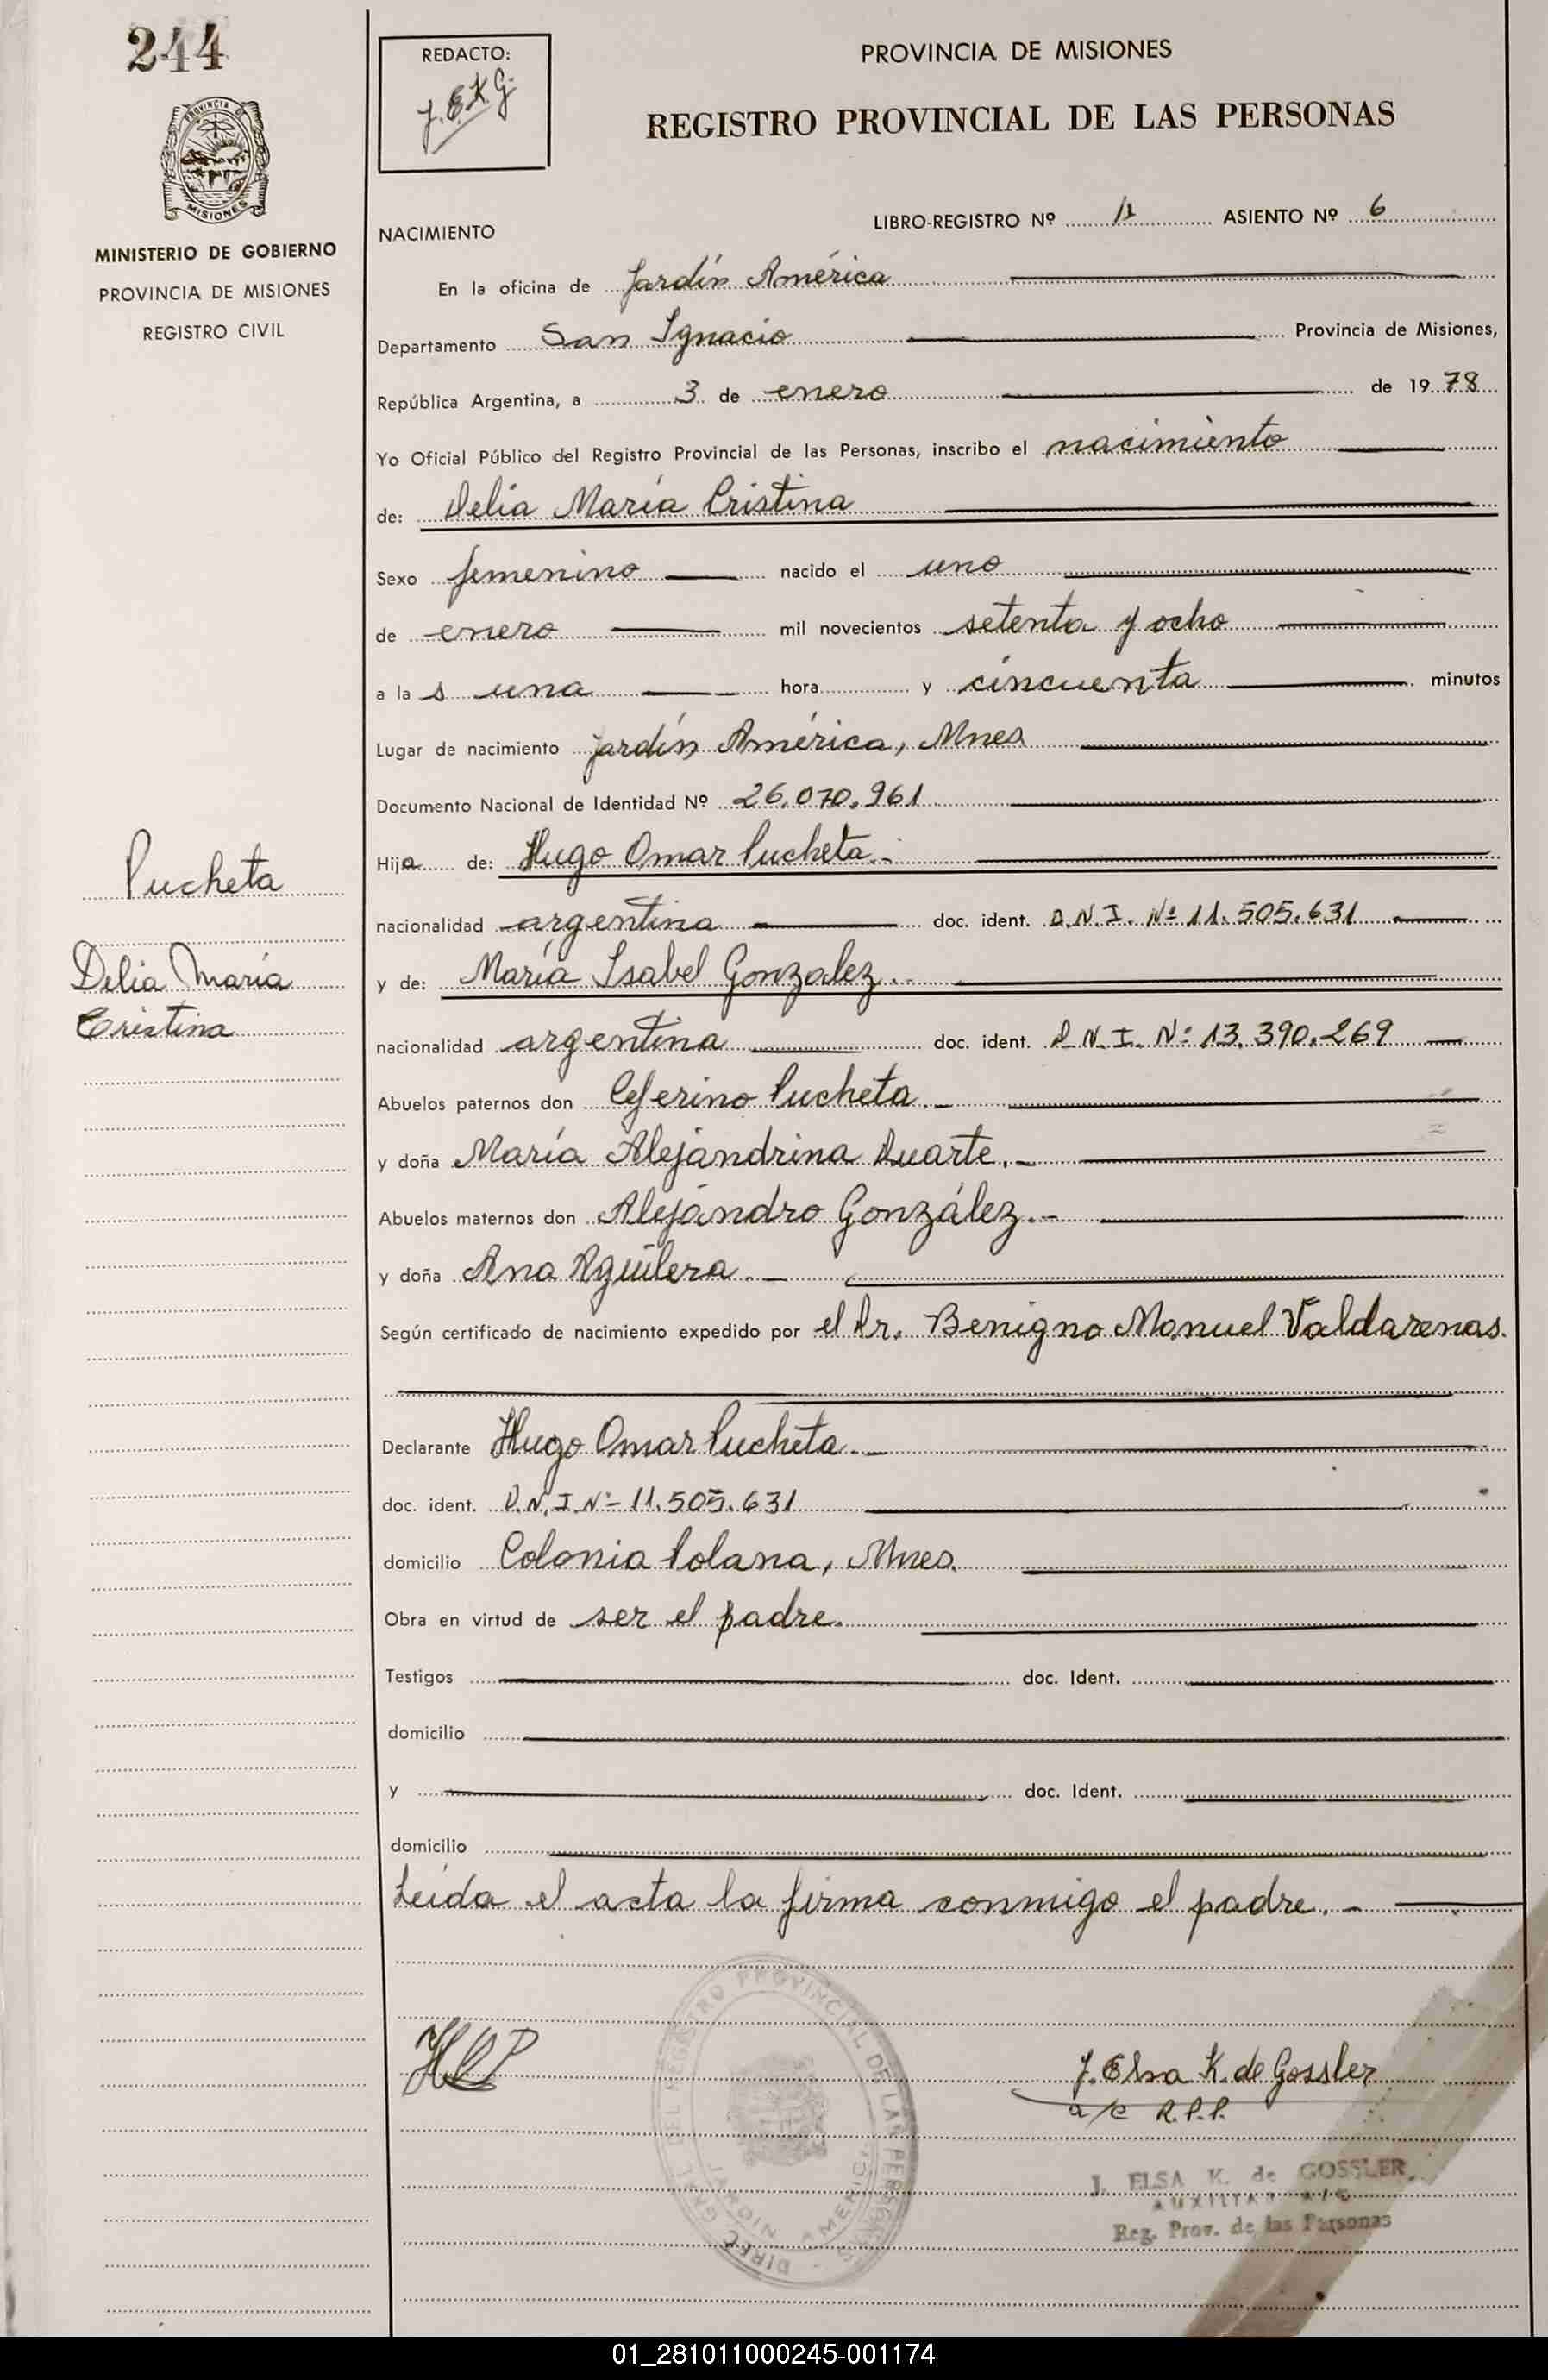 244
REDACTO:
J.E.K.G.
PROVINCIA DE MISIONES
REGISTRO PROVINCIAL DE LAS PERSONAS
PROVINCIA DE
MISIONES
MINISTERIO DE GOBIERNO
PROVINCIA DE MISIONES
REGISTRO CIVIL
NACIMIENTO
LIBRO-REGISTRO Nº ASIENTO Nº 6
En la oficina de Jardín América
Departamento San Ignacio Provincia de Misiones,
República Argentina, a 3 de enero de 1978
Yo Oficial Público del Registro Provincial de las Personas, inscribo el nacimiento
de: Delia María Cristina
Sexo femenino nacido el uno
de enero mil novecientos setenta y ocho
a las una hora y cincuenta minutos
Lugar de nacimiento jardín América, Mnes
Documento Nacional de Identidad Nº 26.070.961
Hija de: Hugo Omar Pucheta.-
Pucheta
nacionalidad argentina doc. ident. D.N.I. Nº 11.505.631
Delia María
Cristina
y de: María Isabel Gonzalez.-
nacionalidad argentina doc. ident. D.N.I. Nº 13.390.269
Abuelos paternos don Ceferino Pucheta.-
y doña María Alejandrina Duarte.-
Abuelos maternos don Alejandro González.-
y doña Ana Aguilera.-
Según certificado de nacimiento expedido por el Dr. Benigno Manuel Valdarenas.
Declarante Hugo Omar Pucheta.-
doc. ident. D.N.I. Nº 11.505.631
domicilio Colonia Polana, Mnes.
Obra en virtud de ser el padre.
Testigos doc. Ident.
domicilio
y doc. Ident.
domicilio
Leída el acta la firma conmigo el padre.-
HOP
J. Elsa K. de Gossler
a/c R.P.P.
DIREC. GRAL. DEL REGISTRO PROVINCIAL DE LAS PERSONAS
JARDIN AMERICA
J. ELSA K. de GOSSLER
AUXILIAR A/C
Reg. Prov. de las Personas
01_281011000245-001174